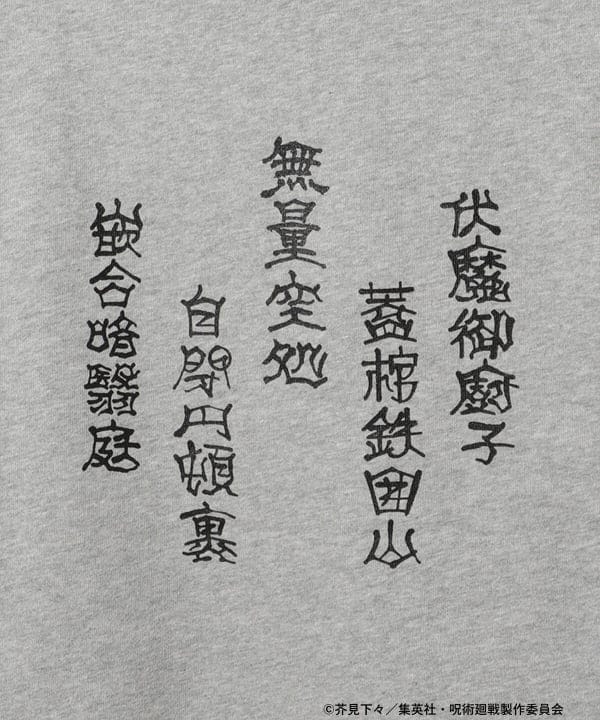 伏魔御廚子
蓋棺鉄囲山
無量空処
自閉円頓裹
嵌合暗翳庭
©芥見下々／集英社・呪術廻戦製作委員会